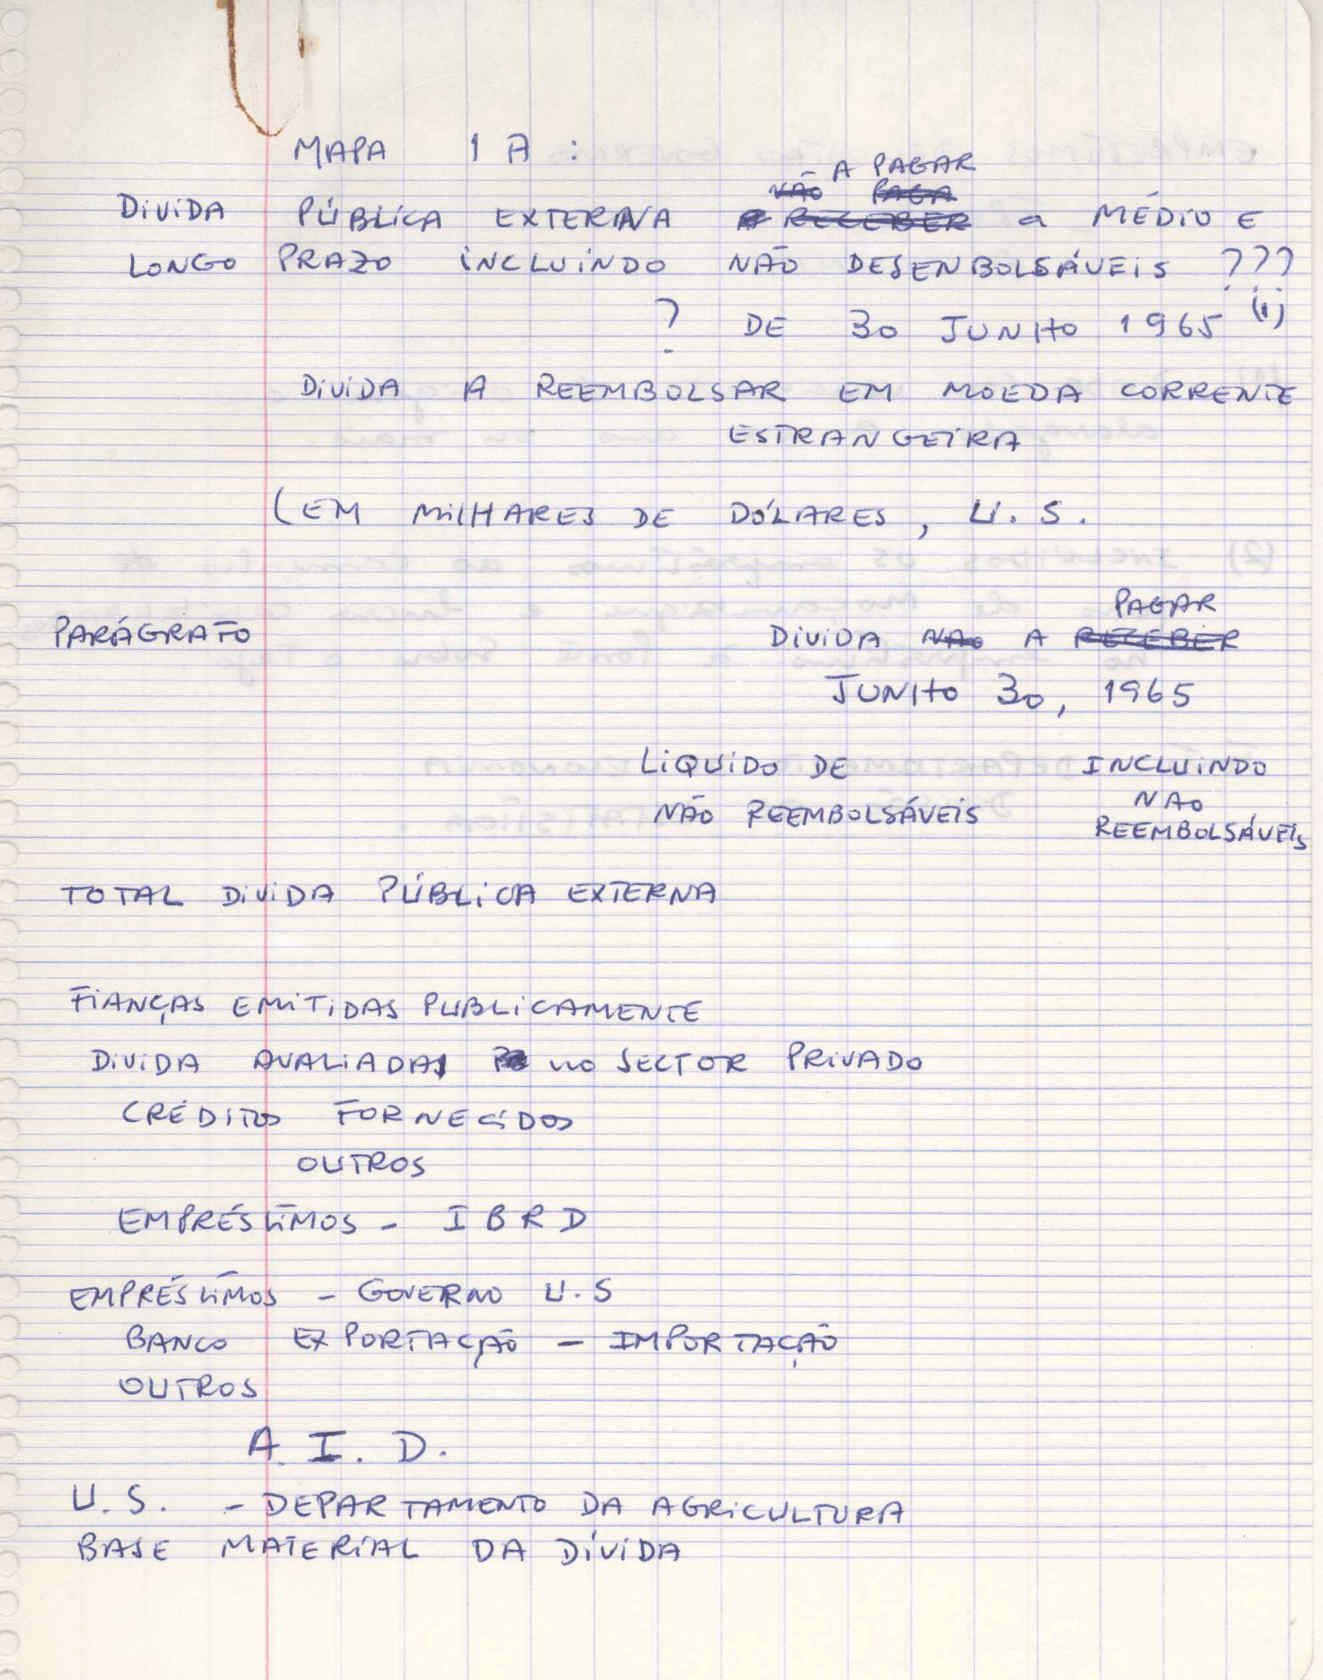 MAPA 1A :
A PAGAR
NÃO PAGA
DIVIDA PÚBLICA EXTERNA A RECEBER a MÉDIO E
LONGO PRAZO INCLUINDO NÃO DESENBOLSÁVEIS ???
? DE 30 JUNHO 1965 (1)
DIVIDA A REEMBOLSAR EM MOEDA CORRENTE
ESTRANGEIRA
(EM MILHARES DE DÓLARES, U.S.
PAGAR
PARÁGRAFO DIVIDA NÃO A RECEBER
JUNHO 30, 1965
LIQUIDO DE INCLUINDO
NÃO REEMBOLSÁVEIS NAO
REEMBOLSÁVEIS
TOTAL DIVIDA PÚBLICA EXTERNA
FIANÇAS EMITIDAS PUBLICAMENTE
DIVIDA AVALIADAS no SECTOR PRIVADO
CRÉDITOS FORNECIDOS
OUTROS
EMPRÉSTIMOS - IBRD
EMPRÉSTIMOS - GOVERNO U.S
BANCO EXPORTAÇÃO - IMPORTAÇÃO
OUTROS
A.I.D.
U.S. - DEPARTAMENTO DA AGRICULTURA
BASE MATERIAL DA DÍVIDA